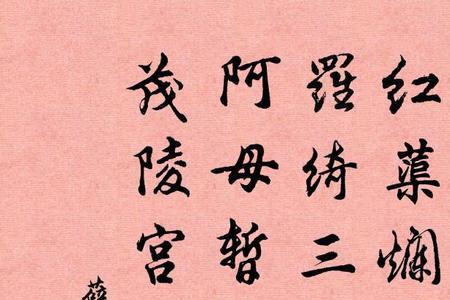 红蕖爛
羅绮三
阿母暫
茂陵宫